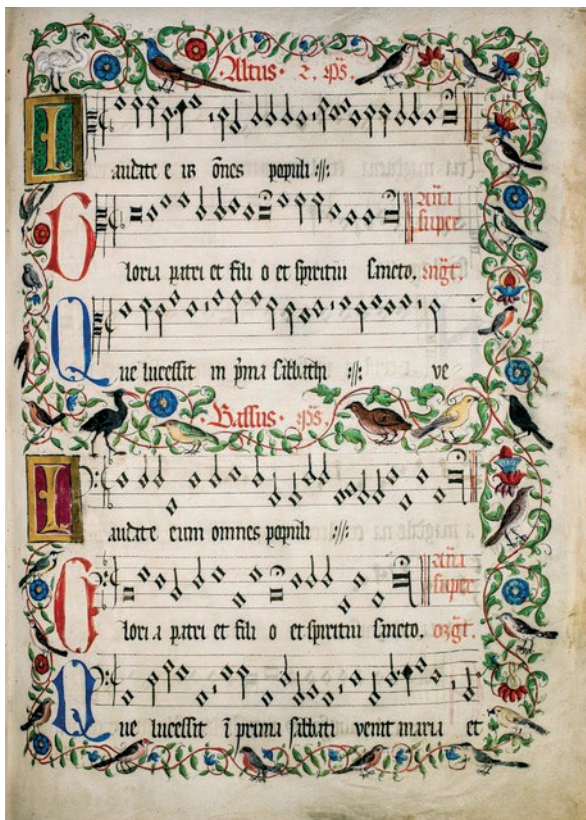 ·Altus· 2. ps̄.
Laudate e um ōnes populi :||:
Gloria patri et fili o et spiritui sancto.
an̄a
super
mg̃t.
Que lucessit in p̄ma sabbathi :||: ve
·Bassus· ps̄.
Laudate eum omnes populi :||:
Gloria patri et fili o et spiritui sancto.
an̄a
super
Que lucessit ī prima sabbati venit maria et